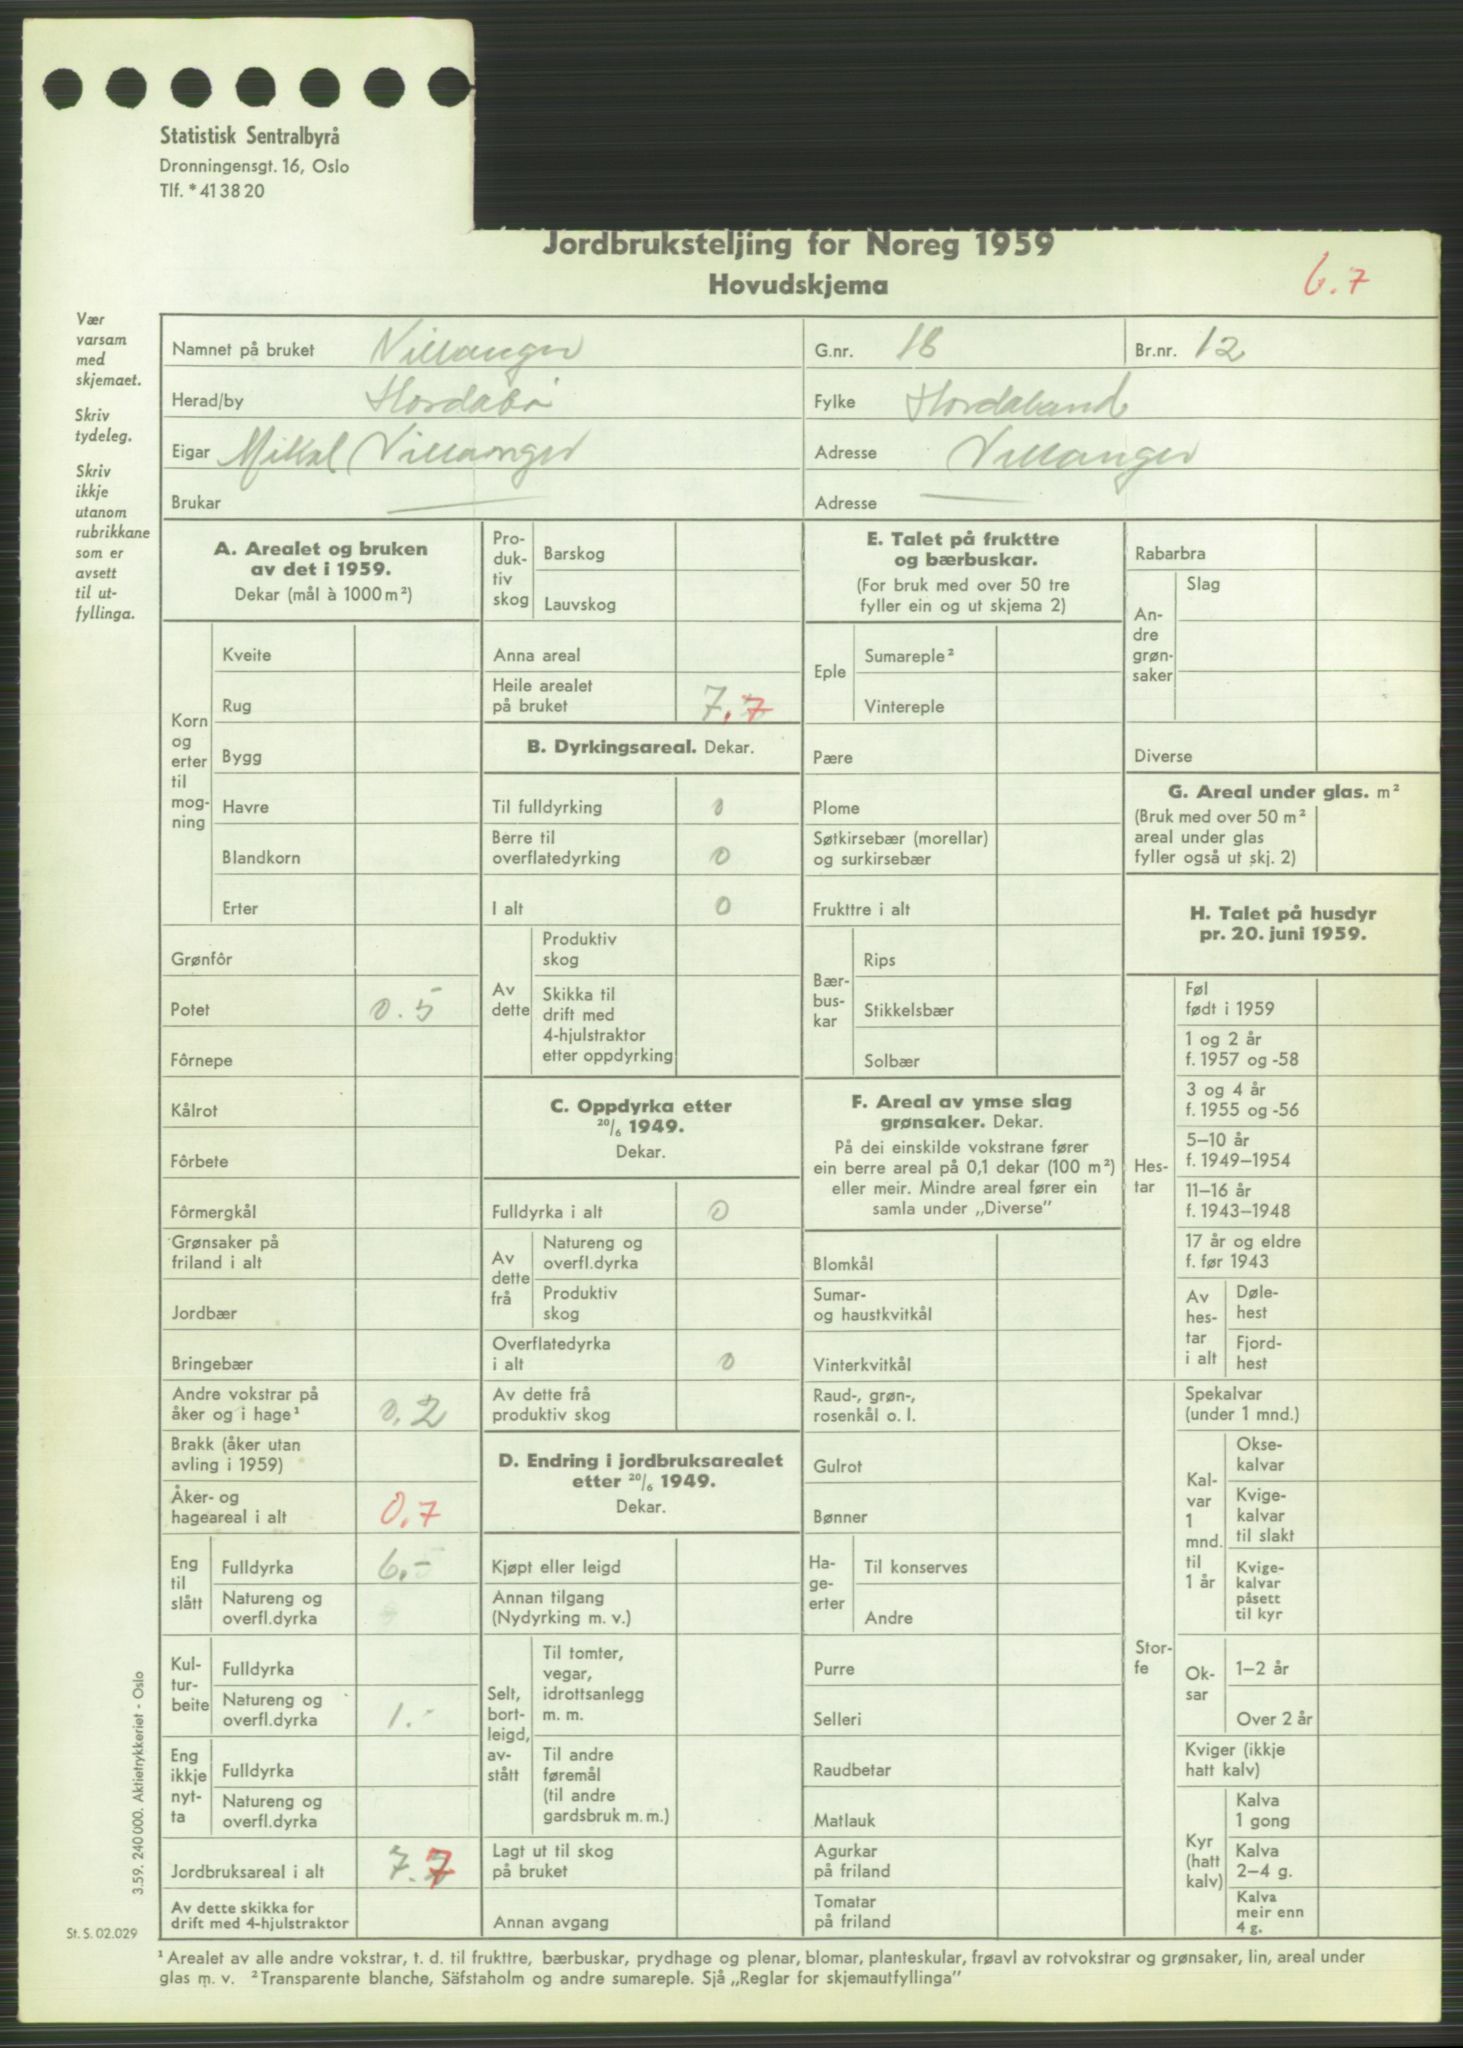 Statistisk Sentralbyrå
Dronningensgt. 16, Oslo
Tlf. *41 38 20
Jordbruksteljing for Noreg 1959
Hovudskjema
6.7
Vær
varsam
med
skjemaet.
Skriv
tydeleg.
Skriv
ikkje
utanom
rubrikkane
som er
avsett
til ut-
fyllinga.
Namnet på bruket Villanger G.nr. 18 Br.nr. 12
Herad/by Hordabø Fylke Hordaland
Eigar Mikal Villanger Adresse Villanger
Brukar — Adresse —
A. Arealet og bruken
av det i 1959.
Dekar (mål à 1000 m²)
Korn
og
erter
til
mog-
ning
Kveite
Rug
Bygg
Havre
Blandkorn
Erter
Grønfôr
Potet 0.5
Fôrnepe
Kålrot
Fôrbete
Fôrmergkål
Grønsaker på
friland i alt
Jordbær
Bringebær
Andre vokstrar på
åker og i hage¹ 0,2
Brakk (åker utan
avling i 1959)
Åker- og
hageareal i alt 0,7
Eng
til
slått
Fulldyrka 6.-
Natureng og
overfl.dyrka
Kul-
tur-
beite
Fulldyrka
Natureng og
overfl.dyrka 1.-
Eng
ikkje
nyt-
ta
Fulldyrka
Natureng og
overfl.dyrka
Jordbruksareal i alt 7.7
Av dette skikka for
drift med 4-hjulstraktor
Pro-
duk-
tiv
skog
Barskog
Lauvskog
Anna areal
Heile arealet
på bruket 7.7
B. Dyrkingsareal. Dekar.
Til fulldyrking 0
Berre til
overflatedyrking 0
I alt 0
Av
dette
Produktiv
skog
Skikka til
drift med
4-hjulstraktor
etter oppdyrking
C. Oppdyrka etter
20/6 1949.
Dekar.
Fulldyrka i alt 0
Av
dette
frå
Natureng og
overfl.dyrka
Produktiv
skog
Overflatedyrka
i alt 0
Av dette frå
produktiv skog
D. Endring i jordbruksarealet
etter 20/6 1949.
Dekar.
Kjøpt eller leigd
Annan tilgang
(Nydyrking m. v.)
Selt,
bort-
leigd,
av-
stått
Til tomter,
vegar,
idrottsanlegg
m. m.
Til andre
føremål
(til andre
gardsbruk m. m.)
Lagt ut til skog
på bruket
Annan avgang
E. Talet på frukttre
og bærbuskar.
(For bruk med over 50 tre
fyller ein og ut skjema 2)
Eple
Sumareple²
Vintereple
Pære
Plome
Søtkirsebær (morellar)
og surkirsebær
Frukttre i alt
Bær-
bus-
kar
Rips
Stikkelsbær
Solbær
F. Areal av ymse slag
grønsaker. Dekar.
På dei einskilde vokstrane fører
ein berre areal på 0,1 dekar (100 m²)
eller meir. Mindre areal fører ein
samla under „Diverse”
Blomkål
Sumar-
og haustkvitkål
Vinterkvitkål
Raud-, grøn-,
rosenkål o. l.
Gulrot
Bønner
Ha-
ge-
erter
Til konserves
Andre
Purre
Selleri
Raudbetar
Matlauk
Agurkar
på friland
Tomatar
på friland
Rabarbra
An-
dre
grøn-
saker
Slag
Diverse
G. Areal under glas. m²
(Bruk med over 50 m²
areal under glas
fyller også ut skj. 2)
H. Talet på husdyr
pr. 20. juni 1959.
Hes-
tar
Føl
født i 1959
1 og 2 år
f. 1957 og -58
3 og 4 år
f. 1955 og -56
5–10 år
f. 1949–1954
11–16 år
f. 1943–1948
17 år og eldre
f. før 1943
Av
hes-
tar
i alt
Døle-
hest
Fjord-
hest
Stor-
fe
Spekalvar
(under 1 mnd.)
Kal-
var
1
mnd.
til
1 år
Okse-
kalvar
Kvige-
kalvar
til slakt
Kvige-
kalvar
påsett
til kyr
Ok-
sar
1–2 år
Over 2 år
Kviger (ikkje
hatt kalv)
Kyr
(hatt
kalv)
Kalva
1 gong
Kalva
2–4 g.
Kalva
meir enn
4 g.
3.59. 240 000. Aktietrykkeriet - Oslo
St. S. 02.029
¹ Arealet av alle andre vokstrar, t. d. til frukttre, bærbuskar, prydhage og plenar, blomar, planteskular, frøavl av rotvokstrar og grønsaker, lin, areal under
glas m. v. ² Transparente blanche, Säfstaholm og andre sumareple. Sjå „Reglar for skjemautfyllinga”